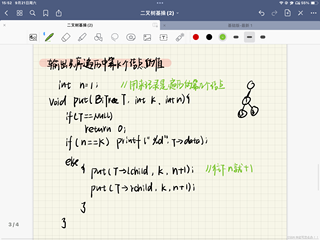 15:53 8月21日周六
二叉树基操 (2)
二叉树基操 (2)
输出先序遍历中第k个结点的值
int n=1; //用来记录是遍历的第几个结点
void put(BiTree T, int k, int n){
if(T==NULL)
return 0;
if(n==k) printf("%d", T->data);
else
{ put(T->lchild, k, n+1); //标记n要+1
put(T->rchild, k, n+1);
}
}
3 / 4